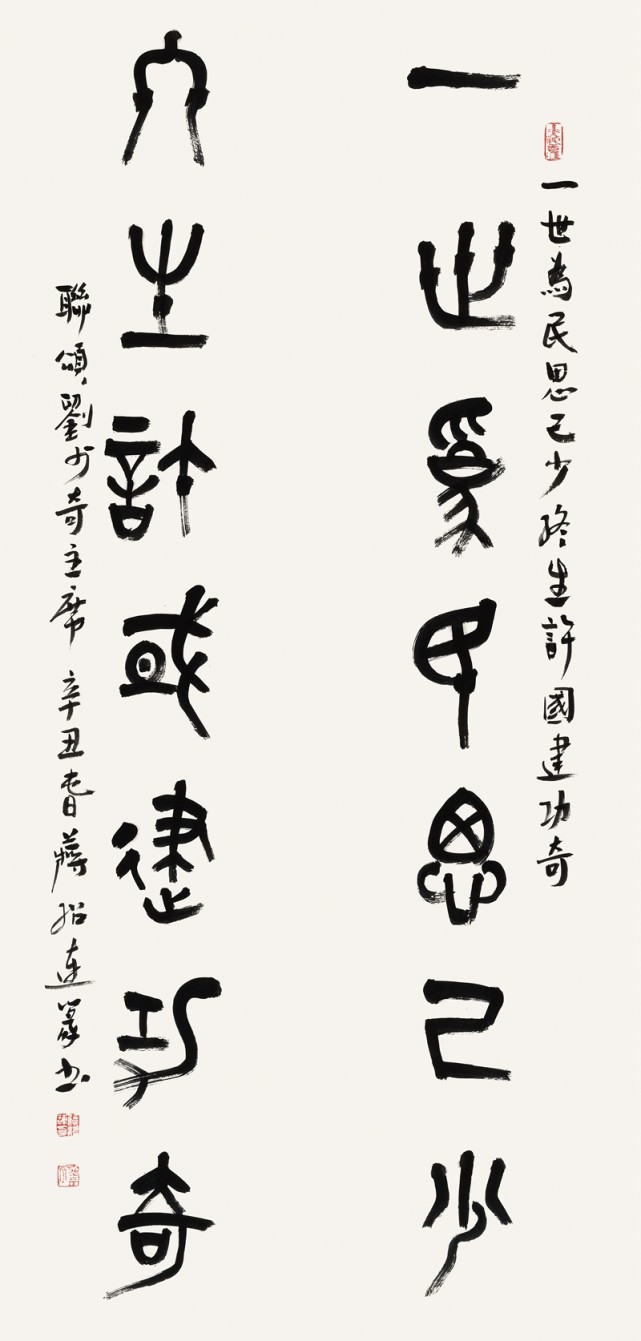 一世為民思己少終生許國建功奇
一世為民思己少
終生許國建功奇
聯頌劉少奇主席 辛丑春蔣招連篆書